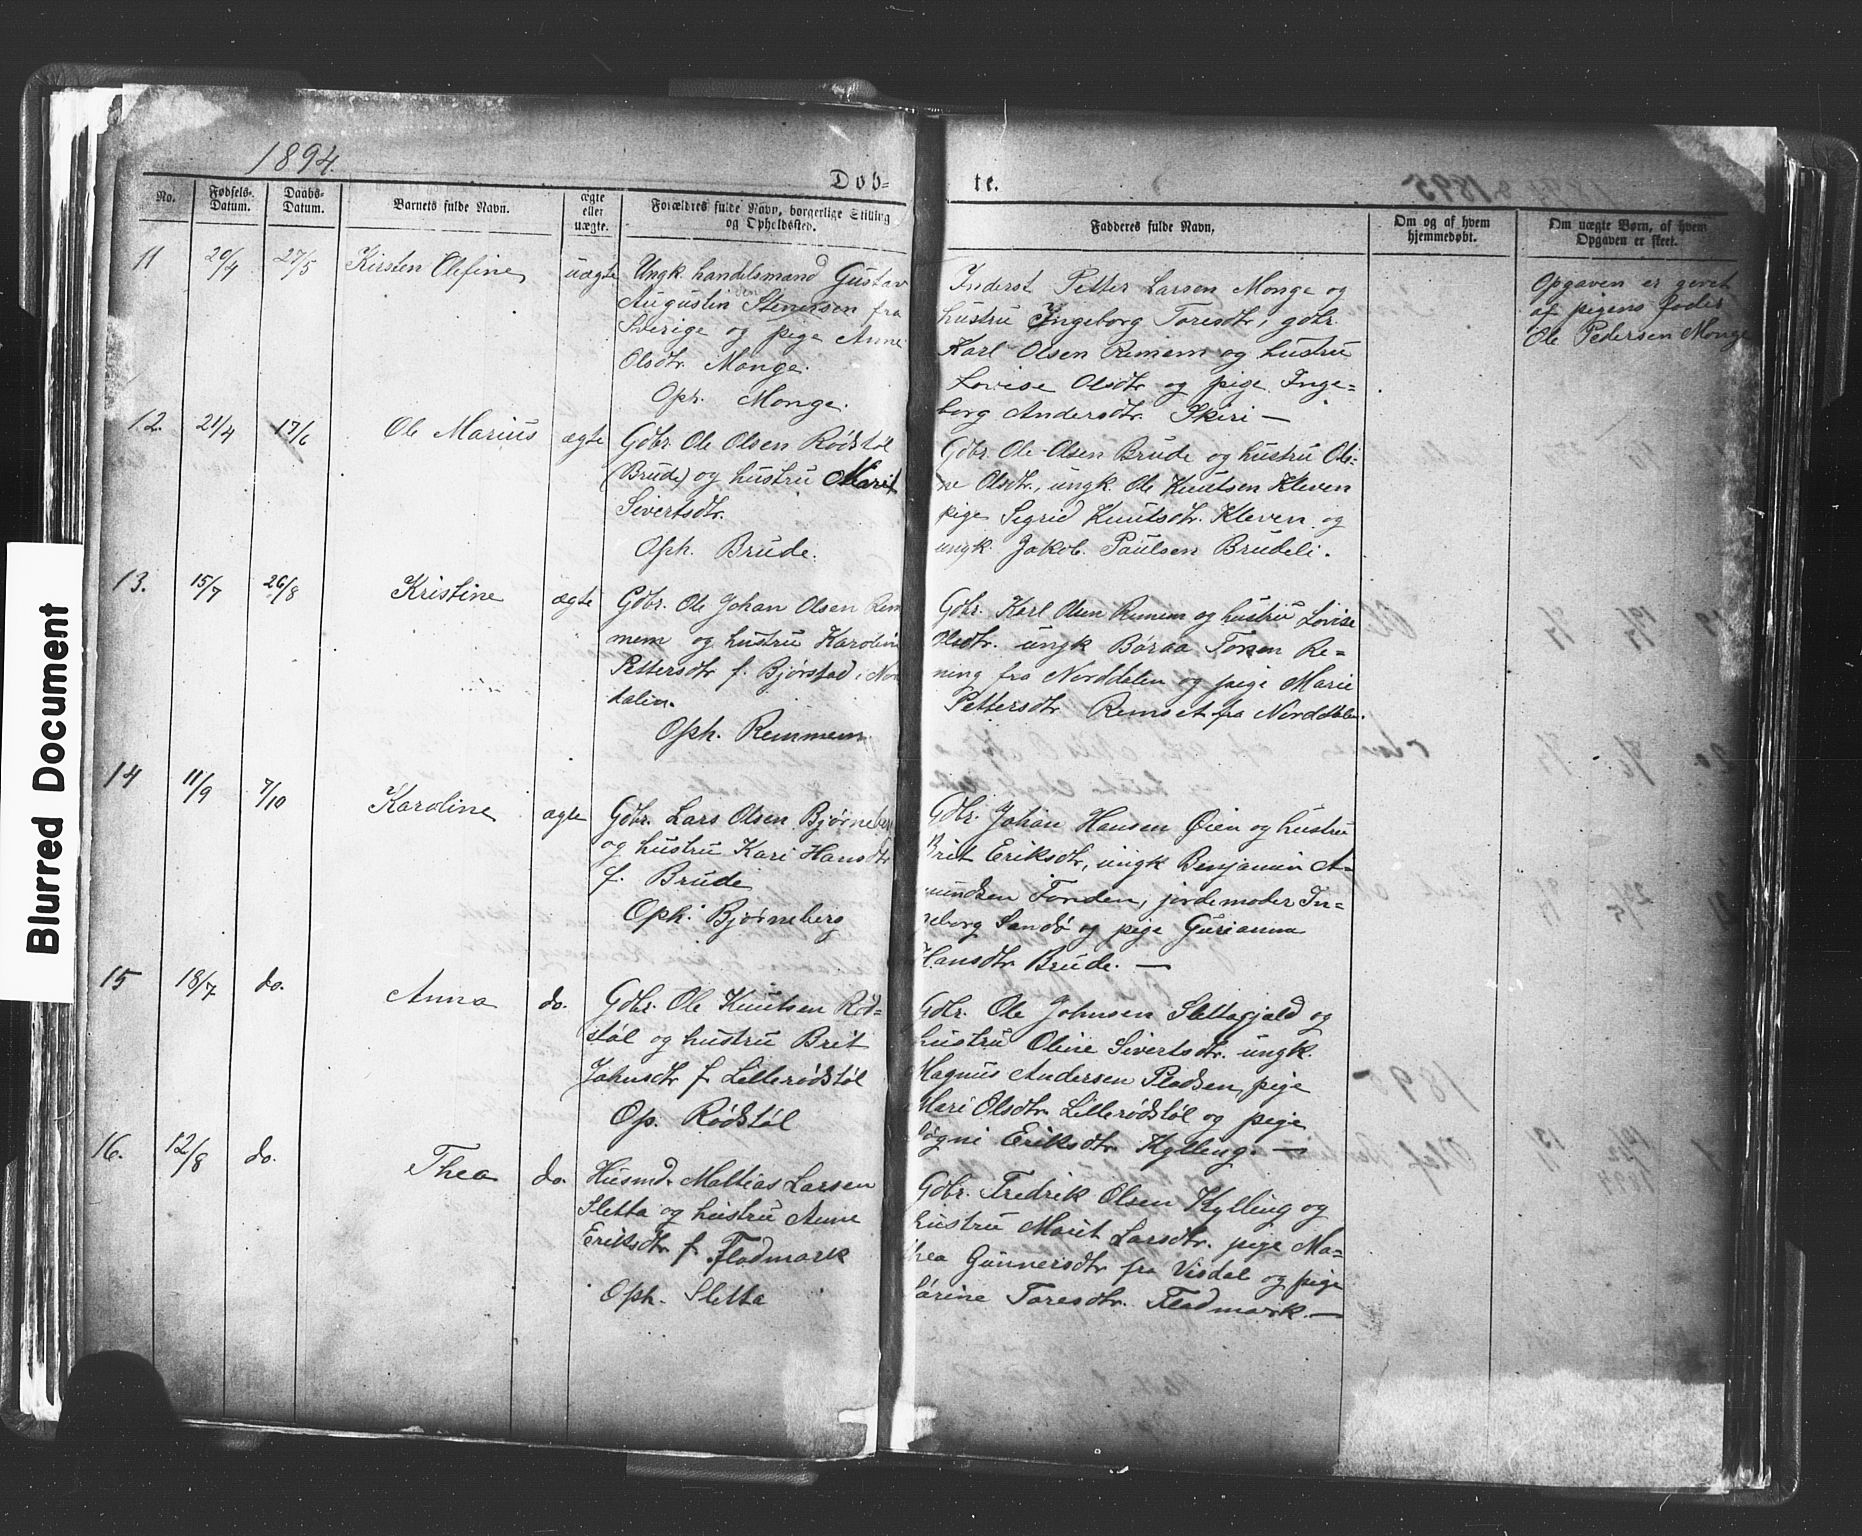 1894.
Døb-
te.
No.
Fødsels-Datum.
Daabs-Datum.
Barnets fulde Navn.
ægte eller uægte.
Forældres fulde Navn, borgerlige Stilling og Opholdssted.
Fadderes fulde Navn.
Om og af hvem hjemmedøbt.
Om uægte Børn, af hvem Opgaven er skeet.
11 20/4 27/5 Kirsten Olefine uægte
Ungk. handelsmand Gustav
Augustin Stenersen fra
Sverige og pige Anne
Olsdtr. Monge.
Oph. Monge.
Inderst Petter Larsen Monge og
hustru Ingeborg Toresdtr, gdbr.
Karl Olsen Remem og hustru
Lovise Olsdtr og pige Inge=
borg Andersdtr. Skiri —
Opgaven er givet
af pigens fader
Ole Pedersen Monge
12. 21/4 17/6 Ole Marius ægte
Gdbr. Ole Olsen Rødstøl
(Brude) og hustru Marit
Sivertsdtr.
Oph. Brude.
Gdbr. Ole Olsen Brude og hustru Oli-
ne Olsdtr., ungk. Ole Knutsen Kleven
pige Sigrid Knutsdtr. Kleven og
ungk. Jakob. Paulsen Brudeli.
13. 15/7 26/8 Kristine ægte
Gdbr. Ole Johan Olsen Rem
mem og hustru Karolin
Pettersdtr f. Bjørstad i Nor
dalen.
Oph. Remmem.
Gdbr. Karl Olsen Remem og hustru Lovise
Olsdtr. ungk Børaa Tonsen Re=
ning fra Norddalen og pige Marie
Pettersdtr Remset fra Norddalen.
14 11/9 7/10 Karoline ægte
Gdbr. Lars Olsen Bjørneberg
og hustru Kari Hansdtr
f. Brude
Oph. Bjørneberg
Gdbr. Johan Hansen Øien og hustru
Brit Eriksdtr, ungk Benjamin A-
mundsen Tonden, jordemoder In=
geborg Sandø og pige Gurianna
Hansdtr Brude. —
15 18/7 do. Anna do.
Gdbr. Ole Knutsen Rød=
støl og hustru Brit
Johnsdtr f. Lillerødstøl
Op. Rødstøl
Gdbr. Ole Johnsen Slettagjald og
hustru Oline Sivertsdtr. ungk.
Magnus Andersen Pladsen, pige
Mari Olsdtr. Lillerødstøl og pige
Eriksdtr. Kylling. —
16. 12/8 do. Thea do.
Husmd. Mattias Larsen
Sletta og hustru Anne
Eriksdtr f. Fladmark
Oph. Sletta
Gdbr. Fredrik Olsen Kylling og
hustru Marit Larsdtr. pige Ma=
thea Gunnersdtr fra Visdal og pige
Sørine Toresdtr. Fladmark. —
Blurred Document